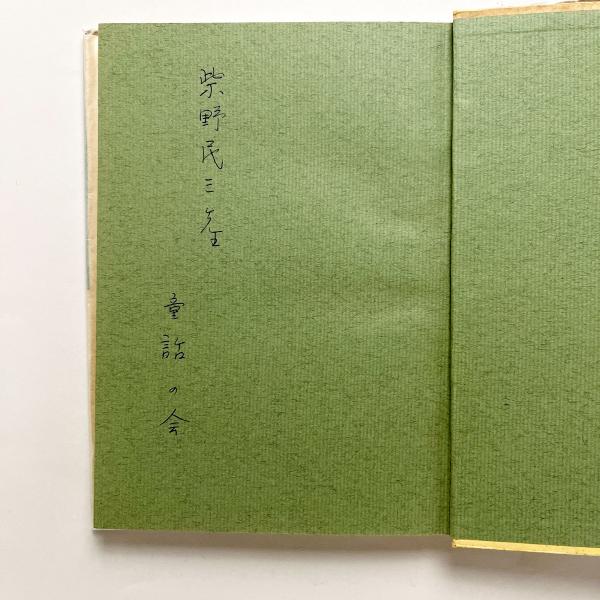 柴野民三先生
童話の会